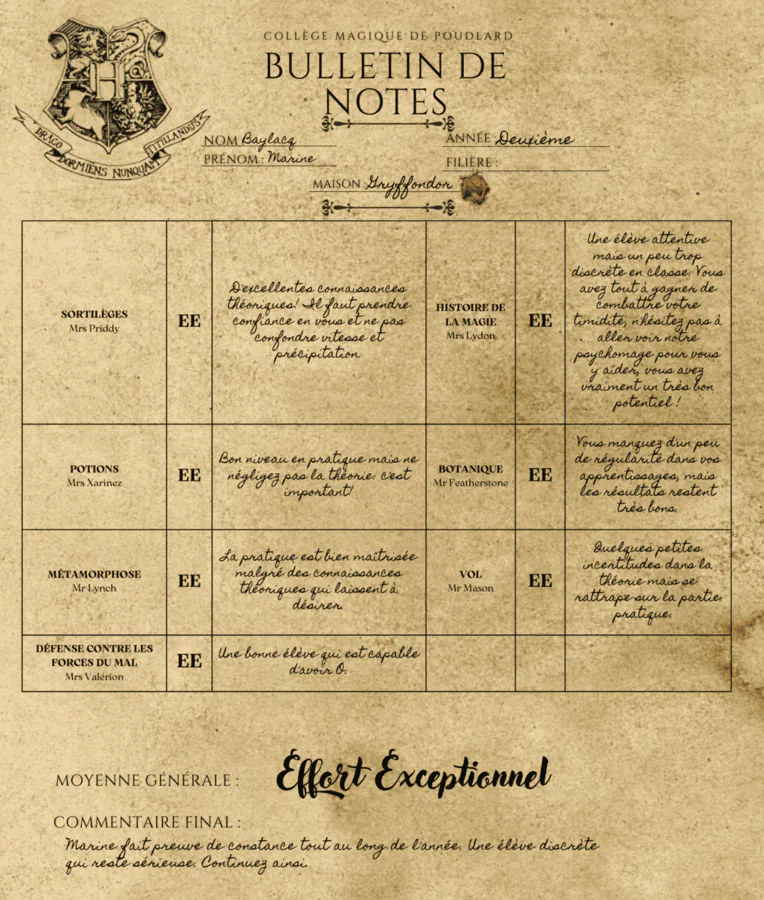 COLLÈGE MAGIQUE DE POUDLARD
BULLETIN DE
NOTES
DRACO
DORMIENS NUNQUAM
TITILLANDUS
NOM Baylacq
PRÉNOM : Marine
ANNÉE Deuxième
FILIÈRE :
MAISON : Gryffondor
SORTILÈGES
Mrs Priddy
EE
D'excellentes connaissances
théoriques! Il faut prendre
confiance en vous et ne pas
confondre vitesse et
précipitation.
HISTOIRE DE
LA MAGIE
Mrs Lydon
EE
Une élève attentive
mais un peu trop
discrète en classe. Vous
avez tout à gagner de
combattre votre
timidité, n'hésitez pas à
aller voir notre
psychomage pour vous
y aider, vous avez
vraiment un très bon
potentiel !
POTIONS
Mrs Xarinez
EE
Bon niveau en pratique mais ne
négligez pas la théorie: c'est
important!
BOTANIQUE
Mr Featherstone
EE
Vous manquez d'un peu
de régularité dans vos
apprentissages, mais
les résultats restent
très bons.
MÉTAMORPHOSE
Mr Lynch
EE
La pratique est bien maîtrisée
malgré des connaissances
théoriques qui laissent à
désirer.
VOL
Mr Mason
EE
Quelques petites
incertitudes dans la
théorie mais se
rattrape sur la partie
pratique.
DÉFENSE CONTRE LES
FORCES DU MAL
Mrs Valérion
EE
Une bonne élève qui est capable
d'avoir O.
MOYENNE GÉNÉRALE :
Effort Exceptionnel
COMMENTAIRE FINAL :
Marine fait preuve de constance tout au long de l'année. Une élève discrète
qui reste sérieuse. Continuez ainsi.